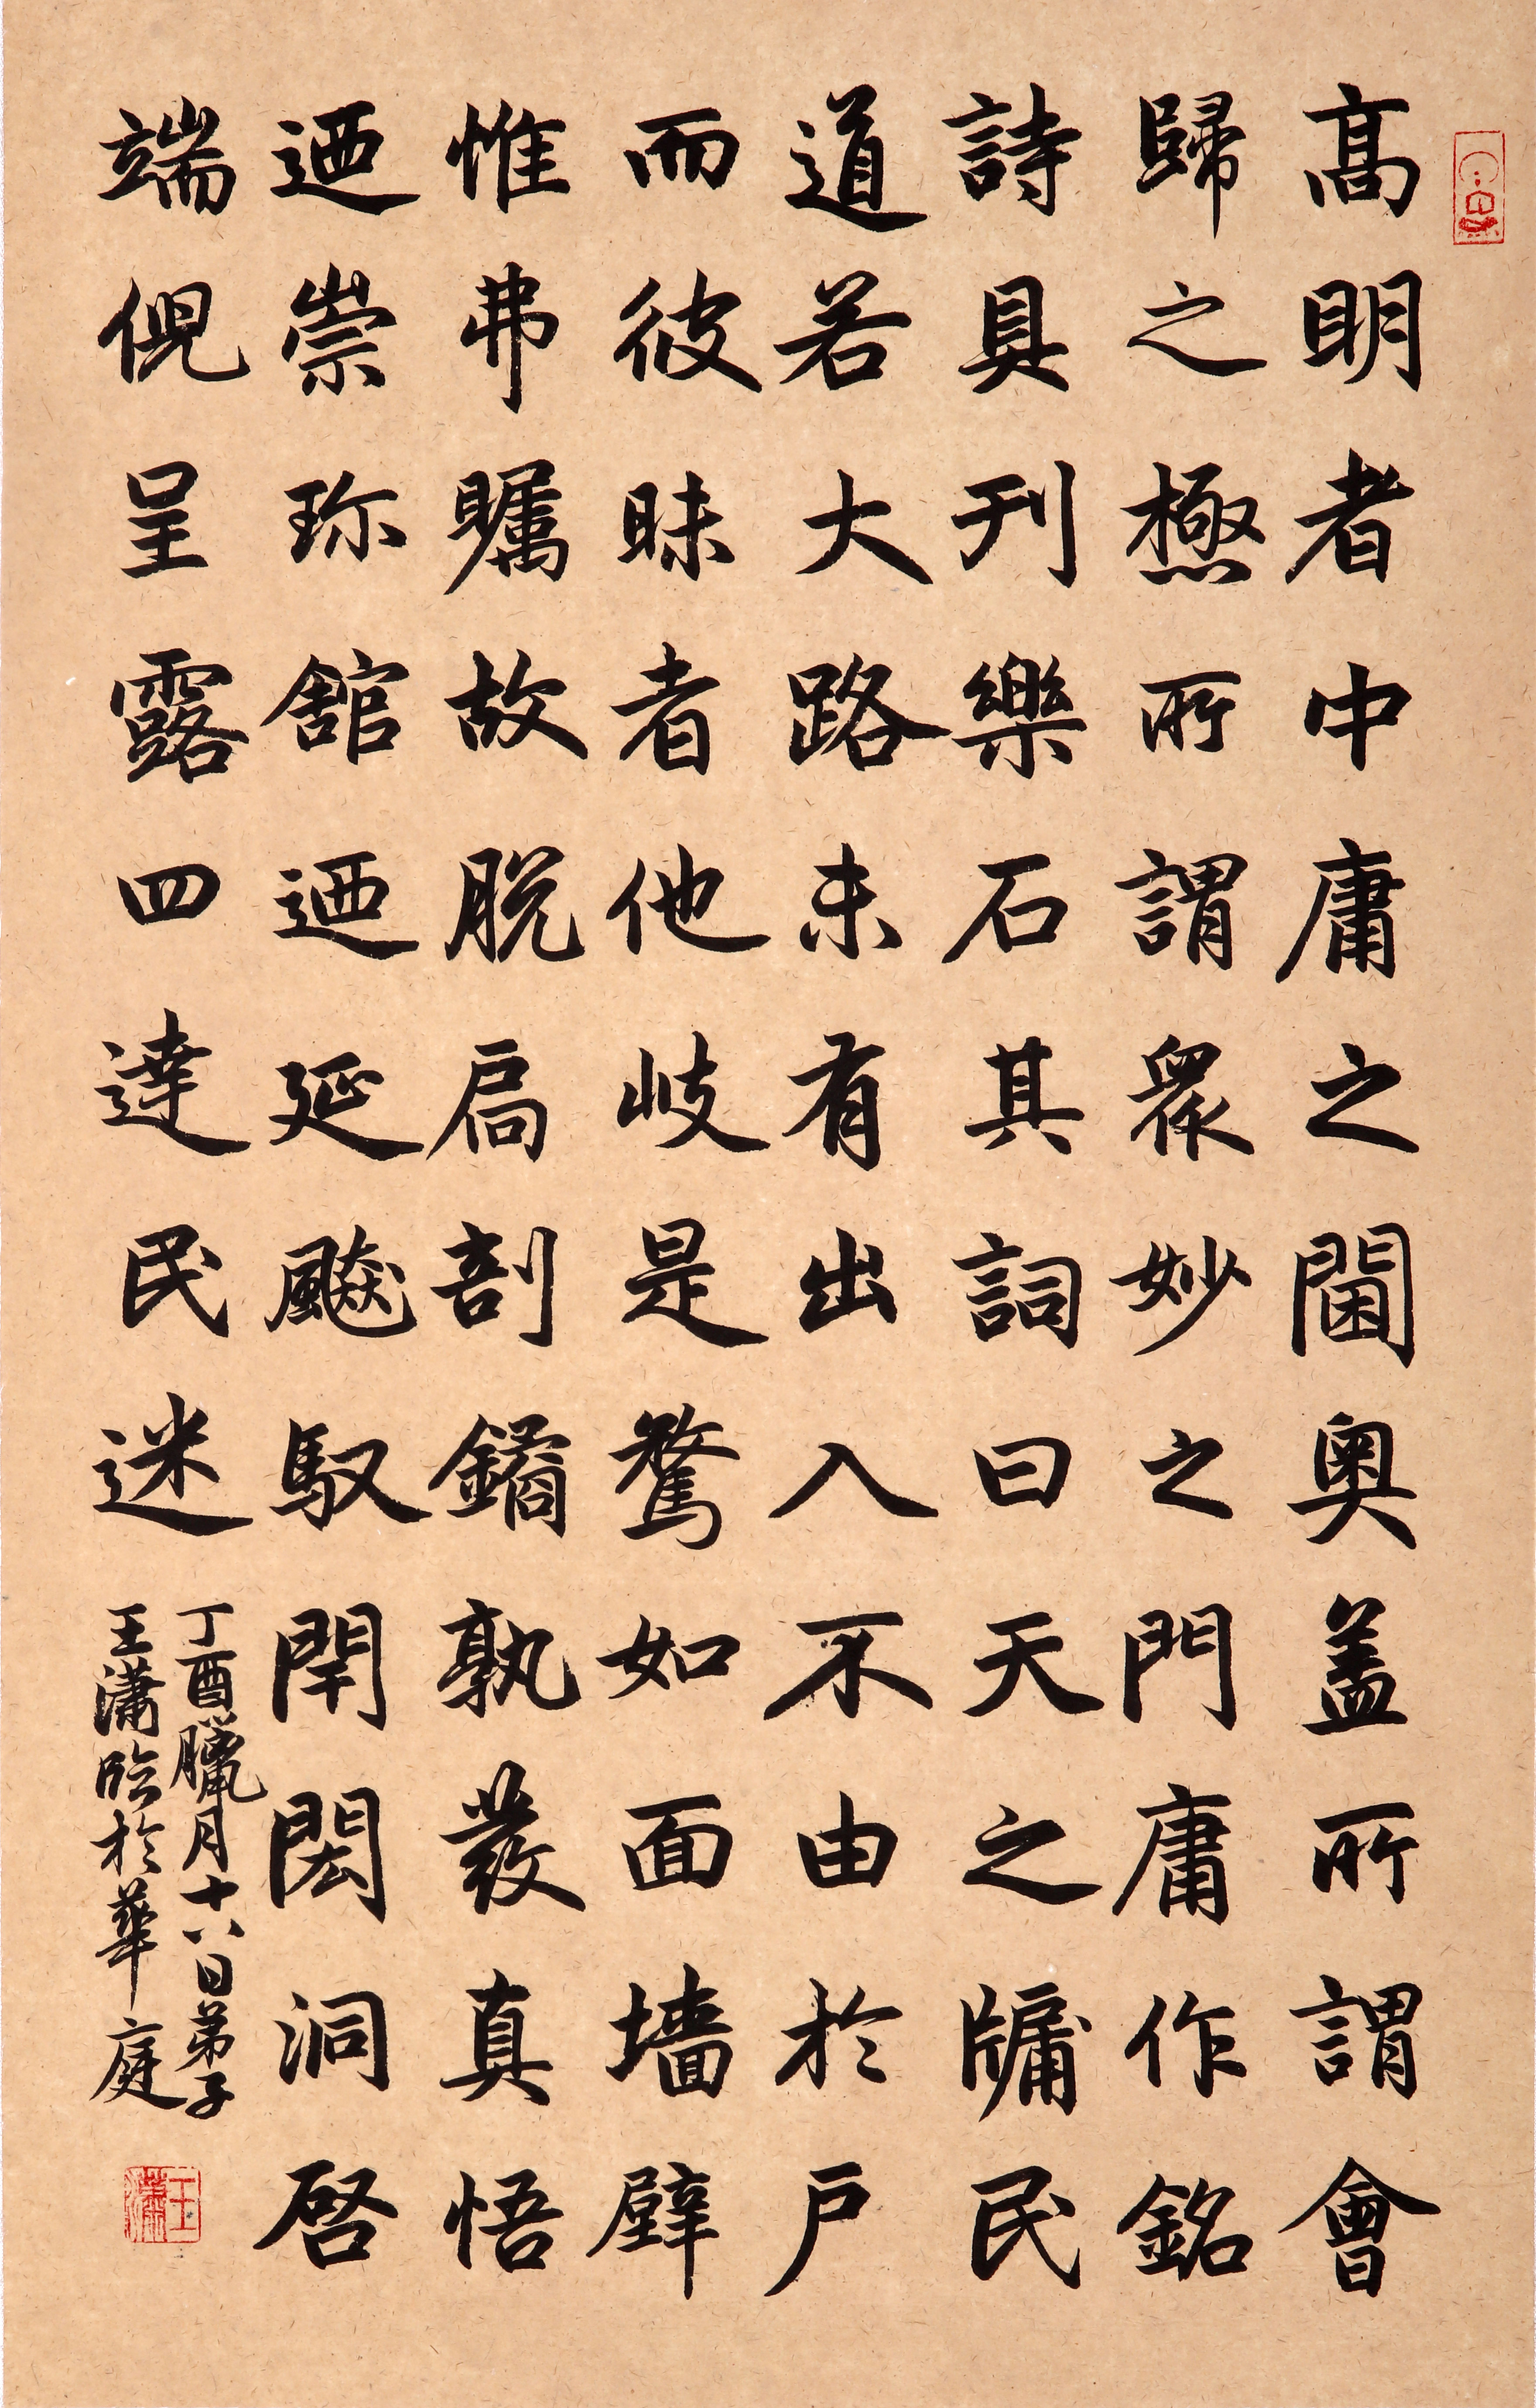 高明者中庸之閫奧盖所謂會
歸之極所謂眾妙之門庸作銘
詩具刊樂石其詞曰天之牖民
道若大路未有出入不由於戶
而彼昧者他岐是騖如面墙壁
惟弗矚故脱扃剖鐍孰發真悟
迺崇珎舘迺延飈馭閈閎洞啓
端倪呈露四達民迷
丁酉臘月十八日弟子
王潇臨於華庭
王潇